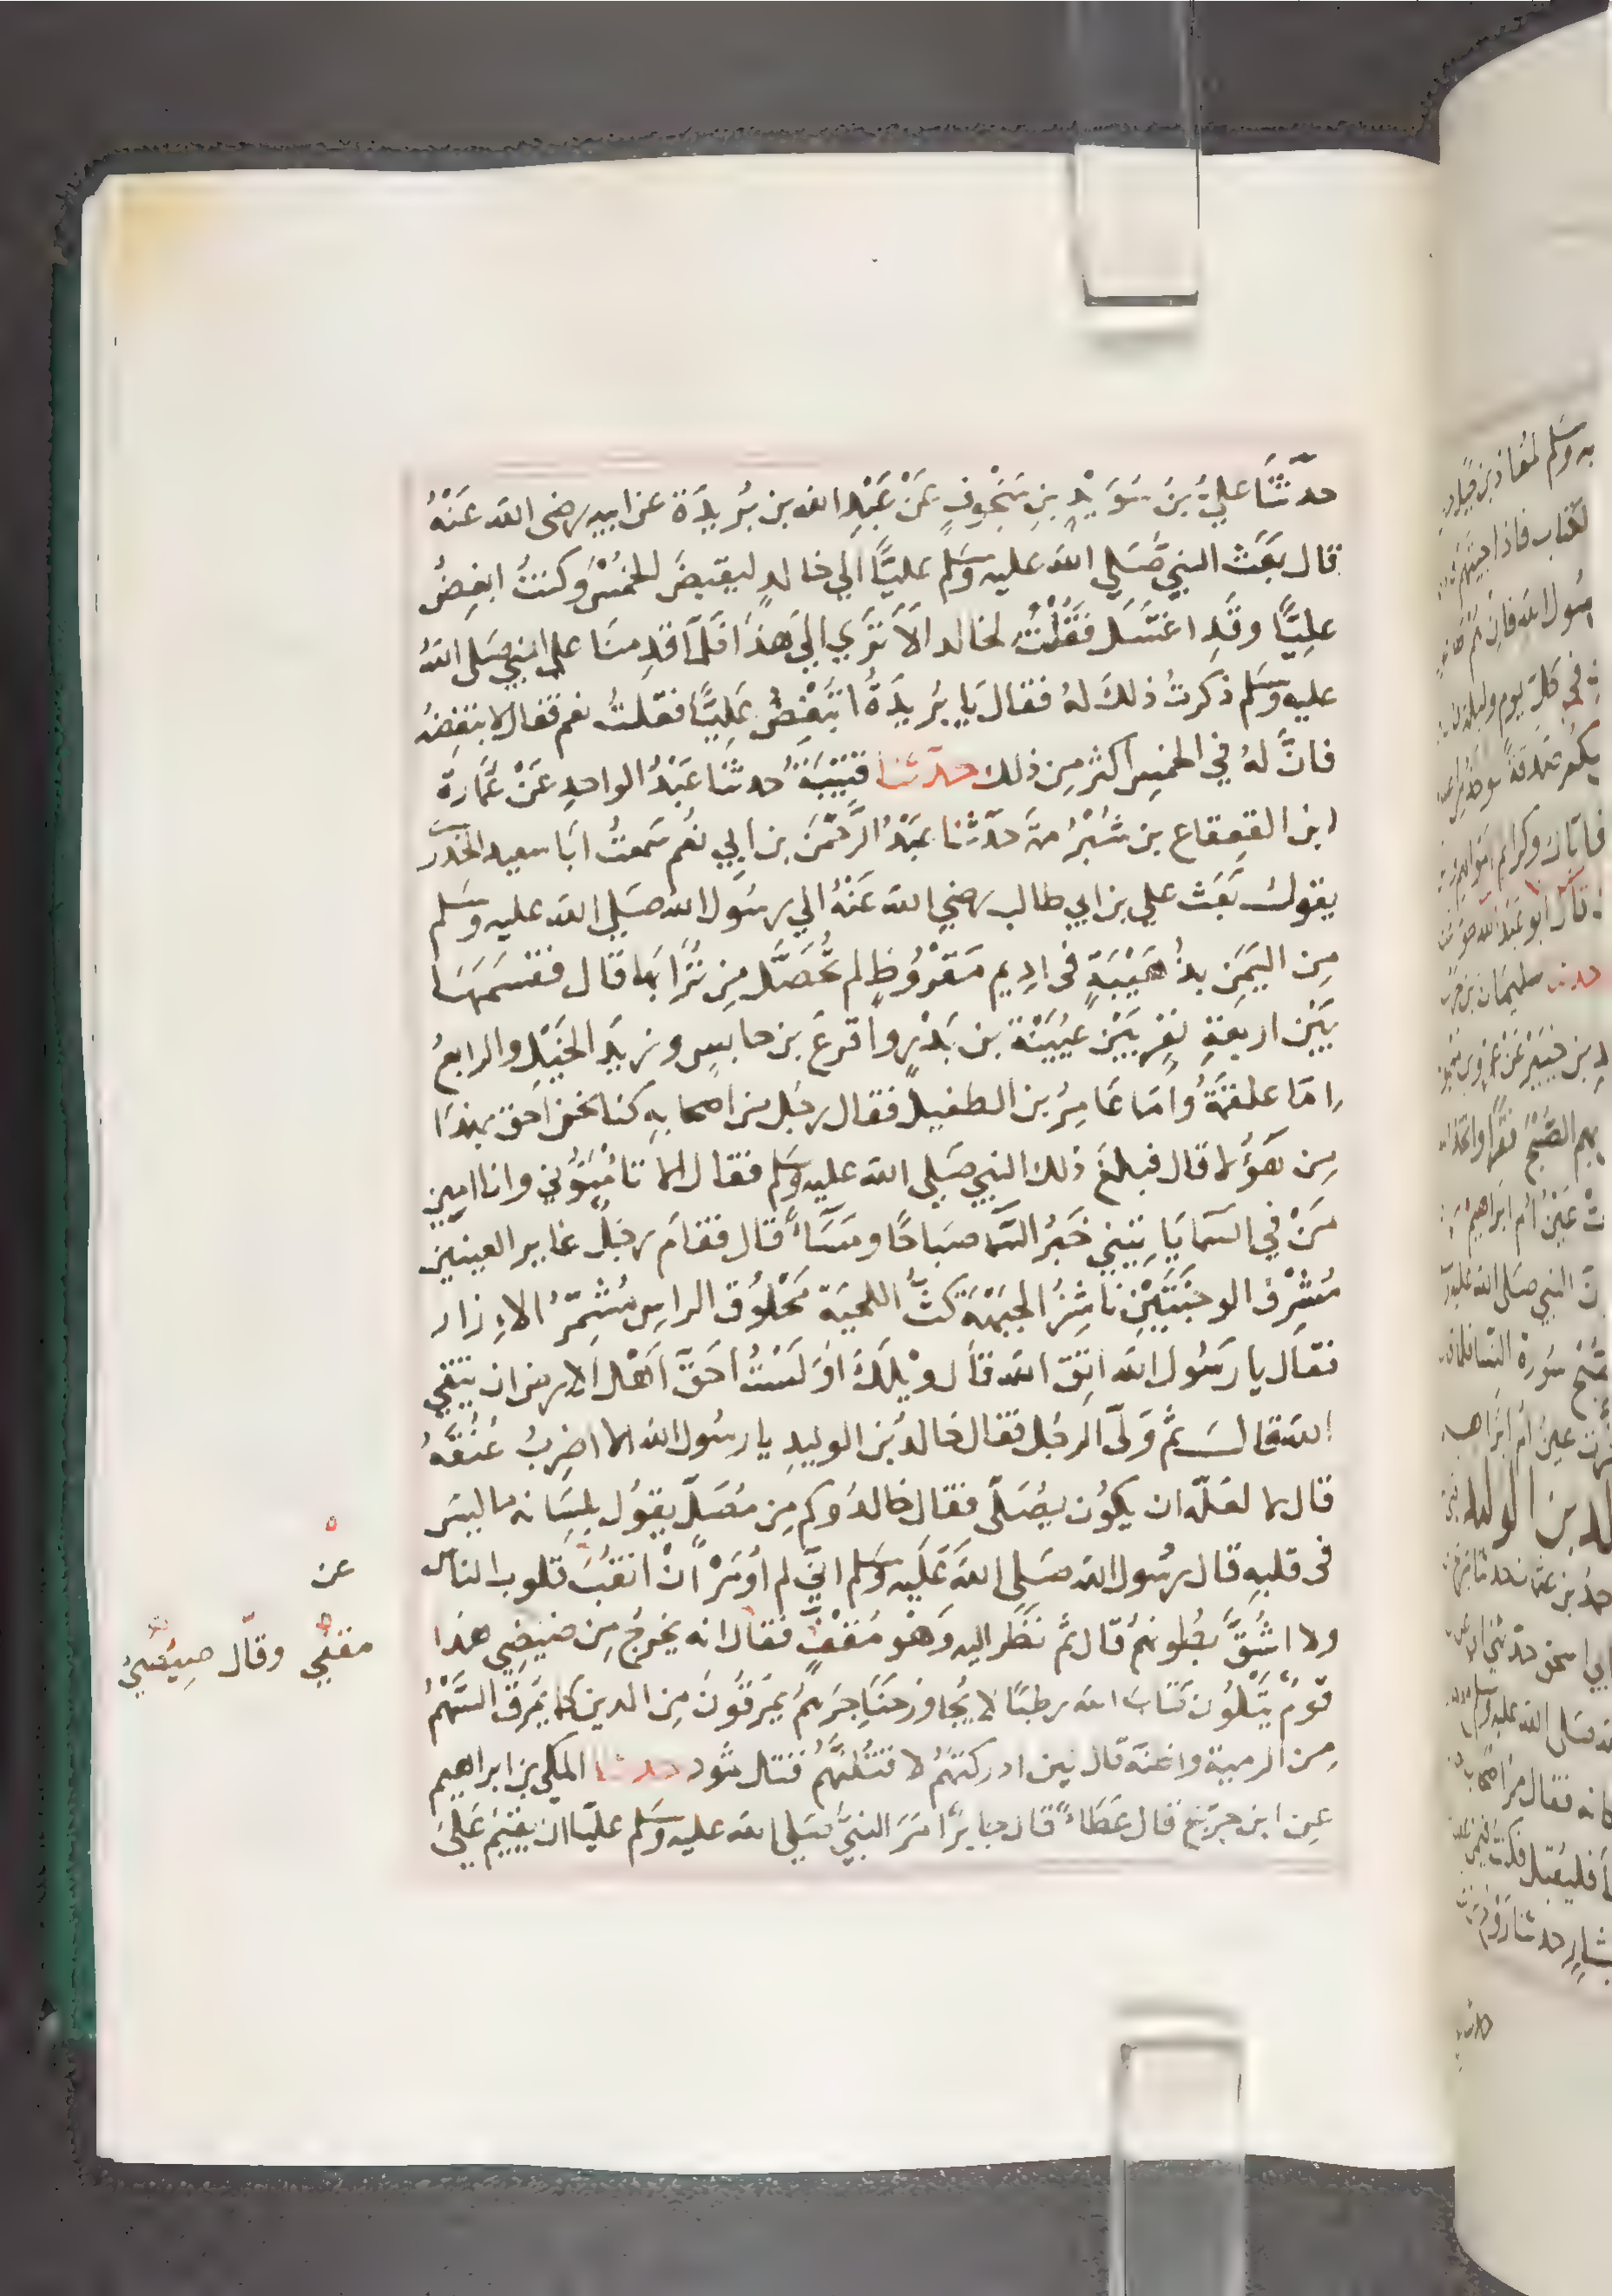 حدثنا علي بن سويد بن منجوف عن عبد الله بن بريدة عن ابيه رضى الله عنه
قال بعث النبي صلي الله عليه وسلم عليا الي خالد ليقبض الخمس وكنت ابغض
عليا وقد اغتسل فقلت لخالد الا تري الي هذا فلما قدمنا على النبي صلى الله
عليه وسلم ذكرت ذلك له فقال يا بريدة اتبغض عليا فقلت نعم فقال لا تبغضه
فان له في الخمس اكثر من ذلك حدثنا قتيبة حدثنا عبد الواحد عن عمارة
ابن القعقاع بن شبرمة حدثنا عبد الرحمن بن ابي نعم سمعت ابا سعيد الخدري
يقول بعث علي بن ابي طالب رضي الله عنه الي رسول الله صلي الله عليه وسلم
من اليمن بذهيبة في اديم مقروظ لم تحصل من ترابها قال فقسمها
بين اربعة نفر بين عيينة بن بدر واقرع بن حابس وزيد الخيل والرابع
اما علقمة واما عامر بن الطفيل فقال رجل من اصحابه كنا نحن احق بهذا
من هؤلا قال فبلغ ذلك النبي صلى الله عليه وسلم فقال الا تامنوني وانا امين
من في السما ياتيني خبر السما صباحا ومساء قال فقام رجل غاير العينين
مشرف الوجنتين ناشز الجبهة كث اللحية محلوق الراس مشمر الازار
فقال يا رسول الله اتق الله قال ويلك اولست احق اهل الارض ان يتقي
الله قال ثم ولى الرجل فقال خالد بن الوليد يا رسول الله الا اضرب عنقه
قال لا لعله ان يكون يصلى فقال خالد وكم من مصل يقول بلسانه ما ليس
في قلبه قال رسول الله صلى الله عليه وسلم اني لم اومر ان انقب قلوب الناس
ولا اشق بطونهم قال ثم نظر اليه وهو مقف فقال انه يخرج من ضيضي هذا
قوم يتلون كتاب الله رطبا لا يجاوز حناجرهم يمرقون من الدين كما يمرق السهم
من الرمية واظنه قال لين ادركتهم لاقتلنهم قتل ثمود حدثنا المكي بن ابراهيم
عن ابن جريج قال عطاء قال جابر امر النبي صلي الله عليه وسلم عليا ان يقيم علي
عن
مقفي وقال صيصي